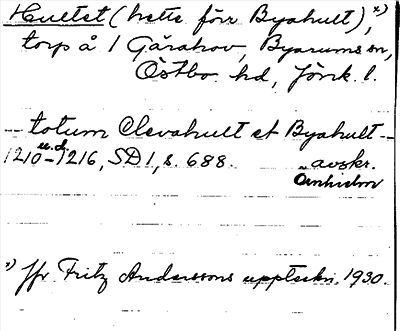 Hultet (hette förr Byahult),ˣ⁾
torp å 1 Gårahov, Byarums sn,
Östbo hd, Jönk. l.
-- totum Clevahult et Byahult --
u.d.
1210-1216, SD 1, s. 688. avskr.
Örnhielm
ˣ⁾ Jfr Fritz Anderssons uppteckn. 1930.